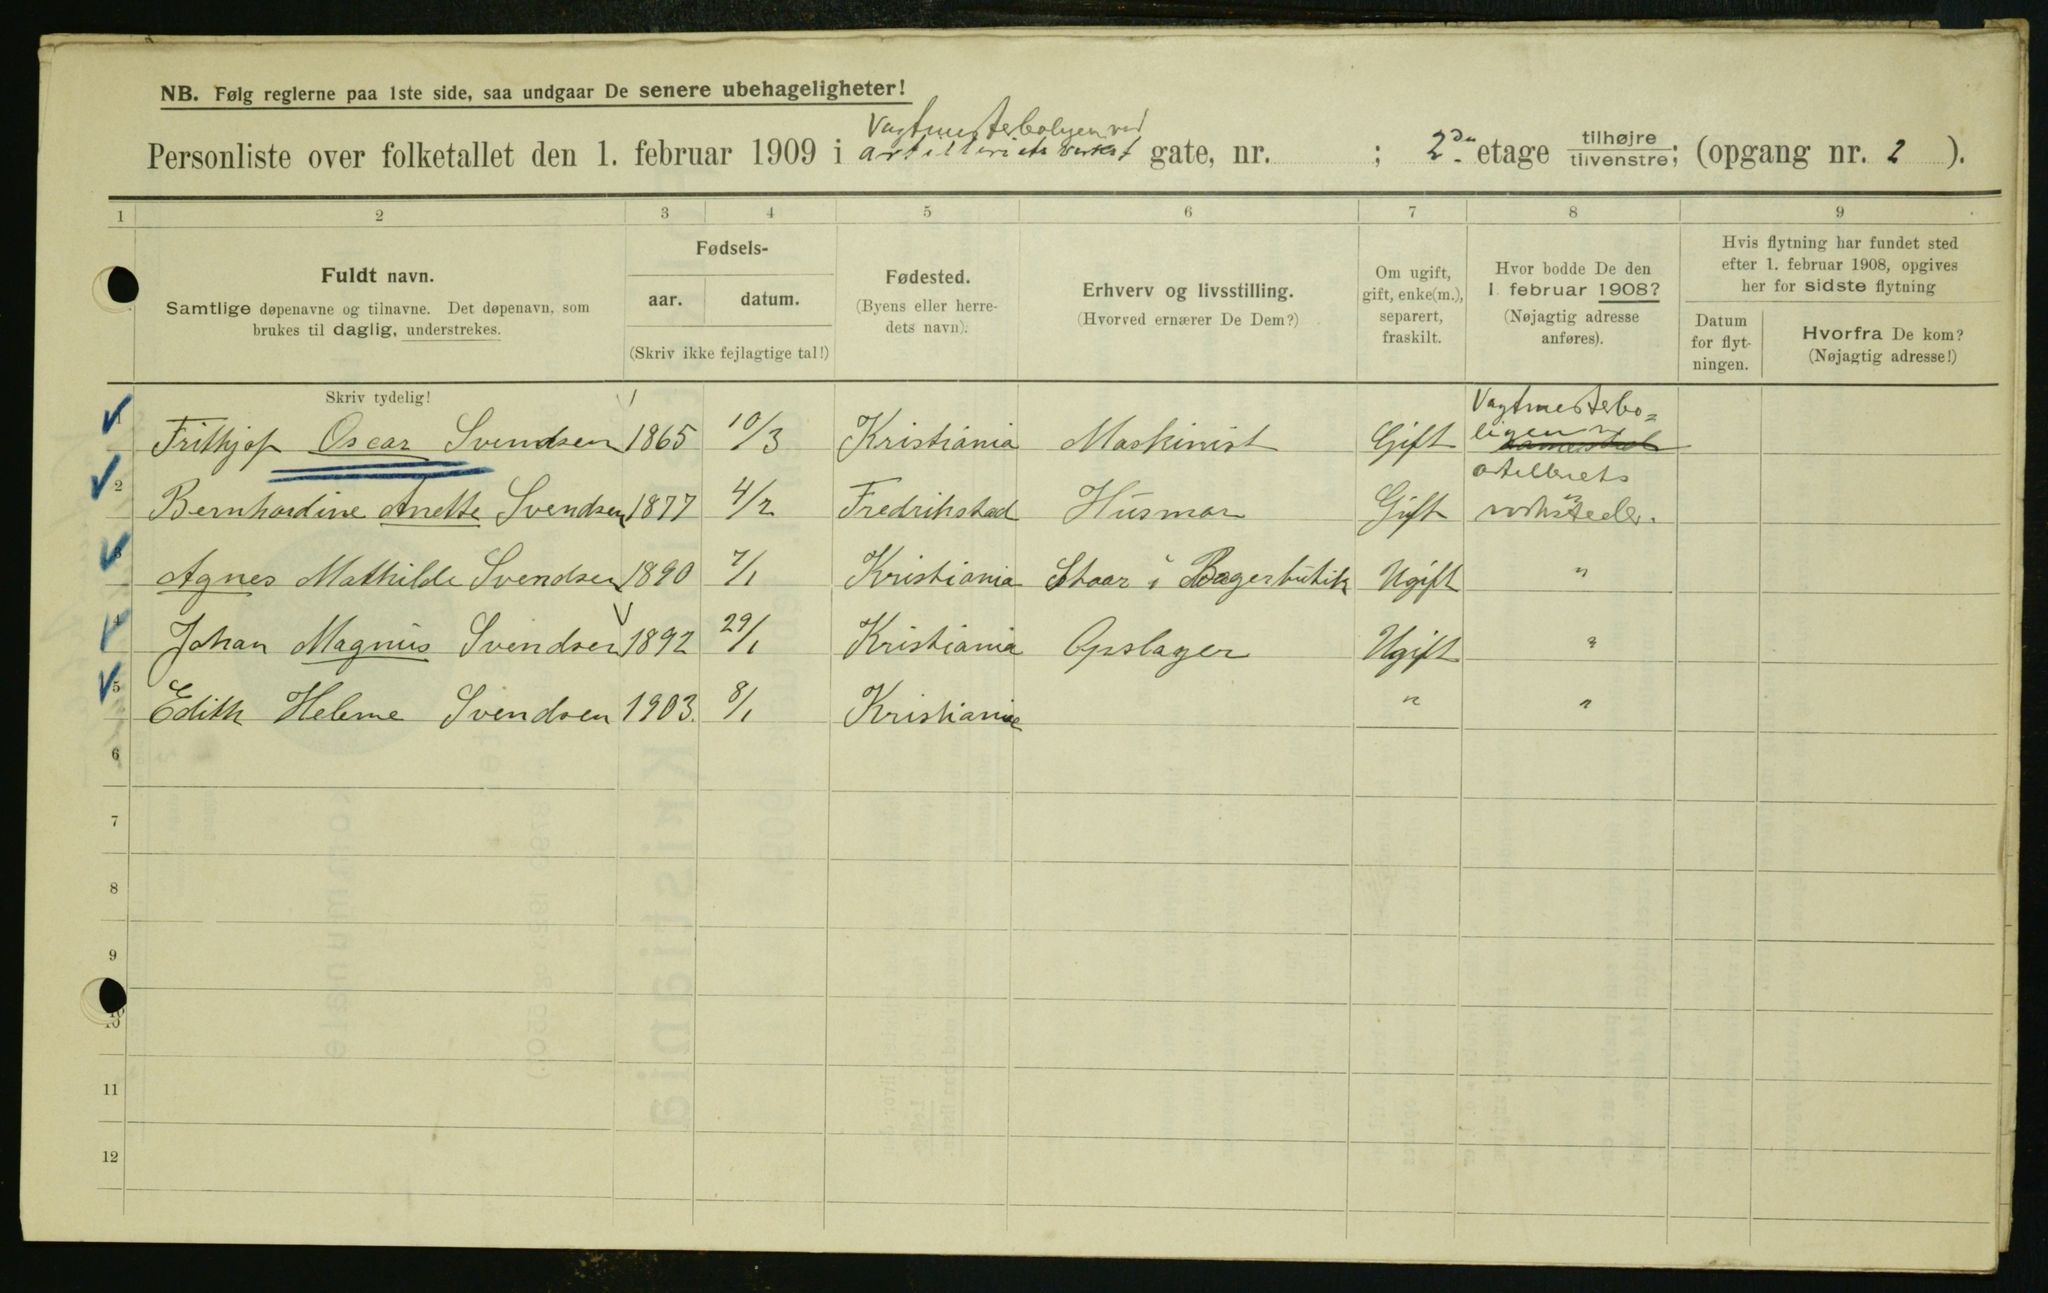 NB. Følg reglerne paa 1ste side, saa undgaar De senere ubehageligheter!
Vagtmesterboligen ved
Personliste over folketallet den 1. februar 1909 i artilleriets verkst gate, nr. ; 2den etage tilhøjre tilvenstre; (opgang nr. 2 ).
1 2 3 4 5 6 7 8 9
Fuldt navn.
Samtlige døpenavne og tilnavne. Det døpenavn, som
brukes til daglig, understrekes.
Fødsels-
aar. datum.
(Skriv ikke fejlagtige tal!)
Fødested.
(Byens eller herre-
dets navn).
Erhverv og livsstilling.
(Hvorved ernærer De Dem?)
Om ugift,
gift, enke(m.),
separert,
fraskilt.
Hvor bodde De den
1. februar 1908?
(Nøjagtig adresse
anføres).
Hvis flytning har fundet sted
efter 1. februar 1908, opgives
her for sidste flytning
Datum
for flyt-
ningen.
Hvorfra De kom?
(Nøjagtig adresse!)
Skriv tydelig!
1 Frithjof Oscar Svendsen 1865 10/3 Kristiania Maskinist Gift Vagtmesterbo=
ligen v
artilleriets
2 Bernhardine Anette Svendsen 1877 4/2 Fredrikstad Husmor Gift verksteder.
3 Agnes Mathilde Svendsen 1890 7/1 Kristiania Staar i Bagerbutik Ugift "
4 Johan Magnus Svendsen 1892 29/1 Kristiania Opslager Ugift "
5 Edith Helene Svendsen 1903. 8/1 Kristiania " "
6
7
8
9
10
11
12